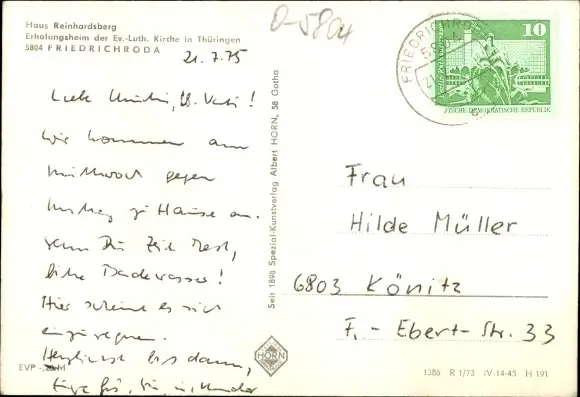 Haus Reinhardsberg
Erholungsheim der Ev.-Luth. Kirche in Thüringen
5804 FRIEDRICHRODA
D-5804
21.7.75
Wir kommen am
Mittwoch gegen
Mittag zu Hause an.
Wenn Du Zeit hast,
bitte Badewasser!
Hier scheint es sich
einzuregnen.
Herzlichst bis dann,
EVP -,20 M
Seit 1898 Spezial-Kunstverlag Albert HORN, 58 Gotha
HORN
FRIEDRICHRODA
5804
10
DEUTSCHE DEMOKRATISCHE REPUBLIK
Frau
Hilde Müller
6803 Könitz
F.-Ebert-Str. 33
1386 R 1/73 IV-14-45 H 191